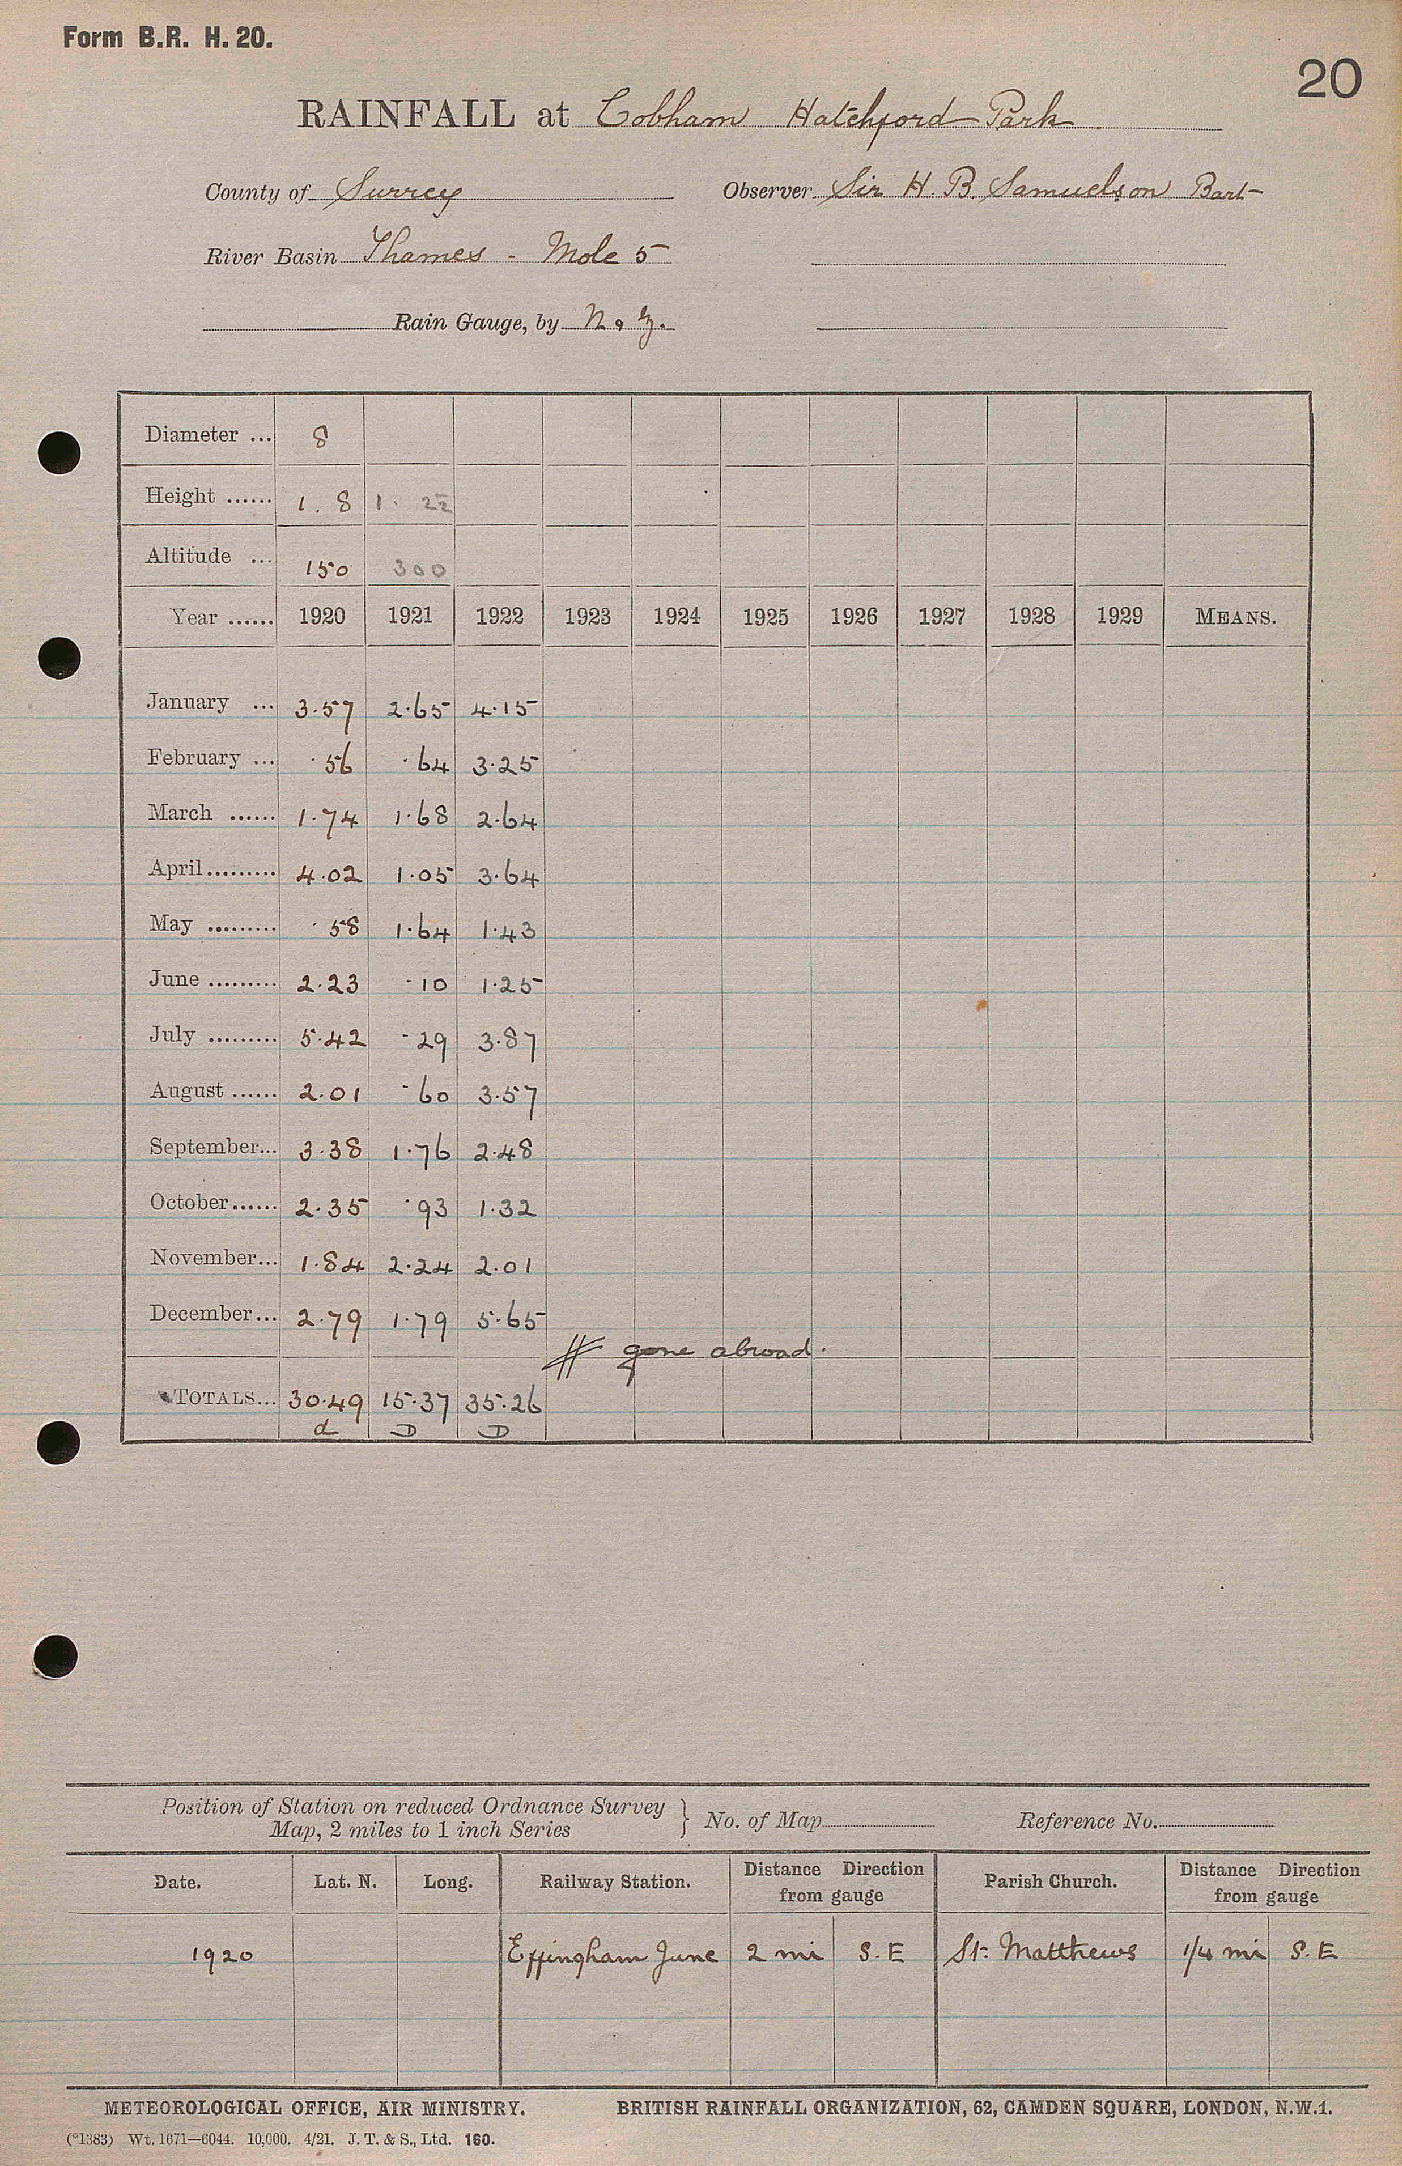 Form B.R. H. 20.
20
RAINFALL at Cobham Hatchford Park
County of Surrey Observer Sir H. B. Samuelson Bart
River Basin Thames - Mole 5
Rain Gauge, by N. & Z.
Diameter ... 8
Height ...... 1. 8 1. 22
Altitude ... 150 300
Year ...... 1920 1921 1922 1923 1924 1925 1926 1927 1928 1929 MEANS.
January ... 3.57 2.65 4.15
February ... .56 .64 3.25
March ...... 1.74 1.68 2.64
April ......... 4.02 1.05 3.64
May ......... .58 1.64 1.43
June ......... 2.23 .10 1.25
July ......... 5.42 .29 3.87
August ...... 2.01 .60 3.57
September... 3.38 1.76 2.48
October...... 2.35 .93 1.32
November... 1.84 2.24 2.01
December... 2.79 1.79 5.65
# gone abroad.
TOTALS... 30.49 15.37 35.26
d D D
Position of Station on reduced Ordnance Survey
Map, 2 miles to 1 inch Series } No. of Map Reference No.
Date. Lat. N. Long. Railway Station. Distance Direction from gauge Parish Church. Distance Direction from gauge
1920 Effingham June 2 mi S. E St. Matthews 1/4 mi S. E
METEOROLOGICAL OFFICE, AIR MINISTRY. BRITISH RAINFALL ORGANIZATION, 62, CAMDEN SQUARE, LONDON, N.W.1.
(*1383) Wt. 1671—6044. 10,000. 4/21. J. T. & S., Ltd. 160.